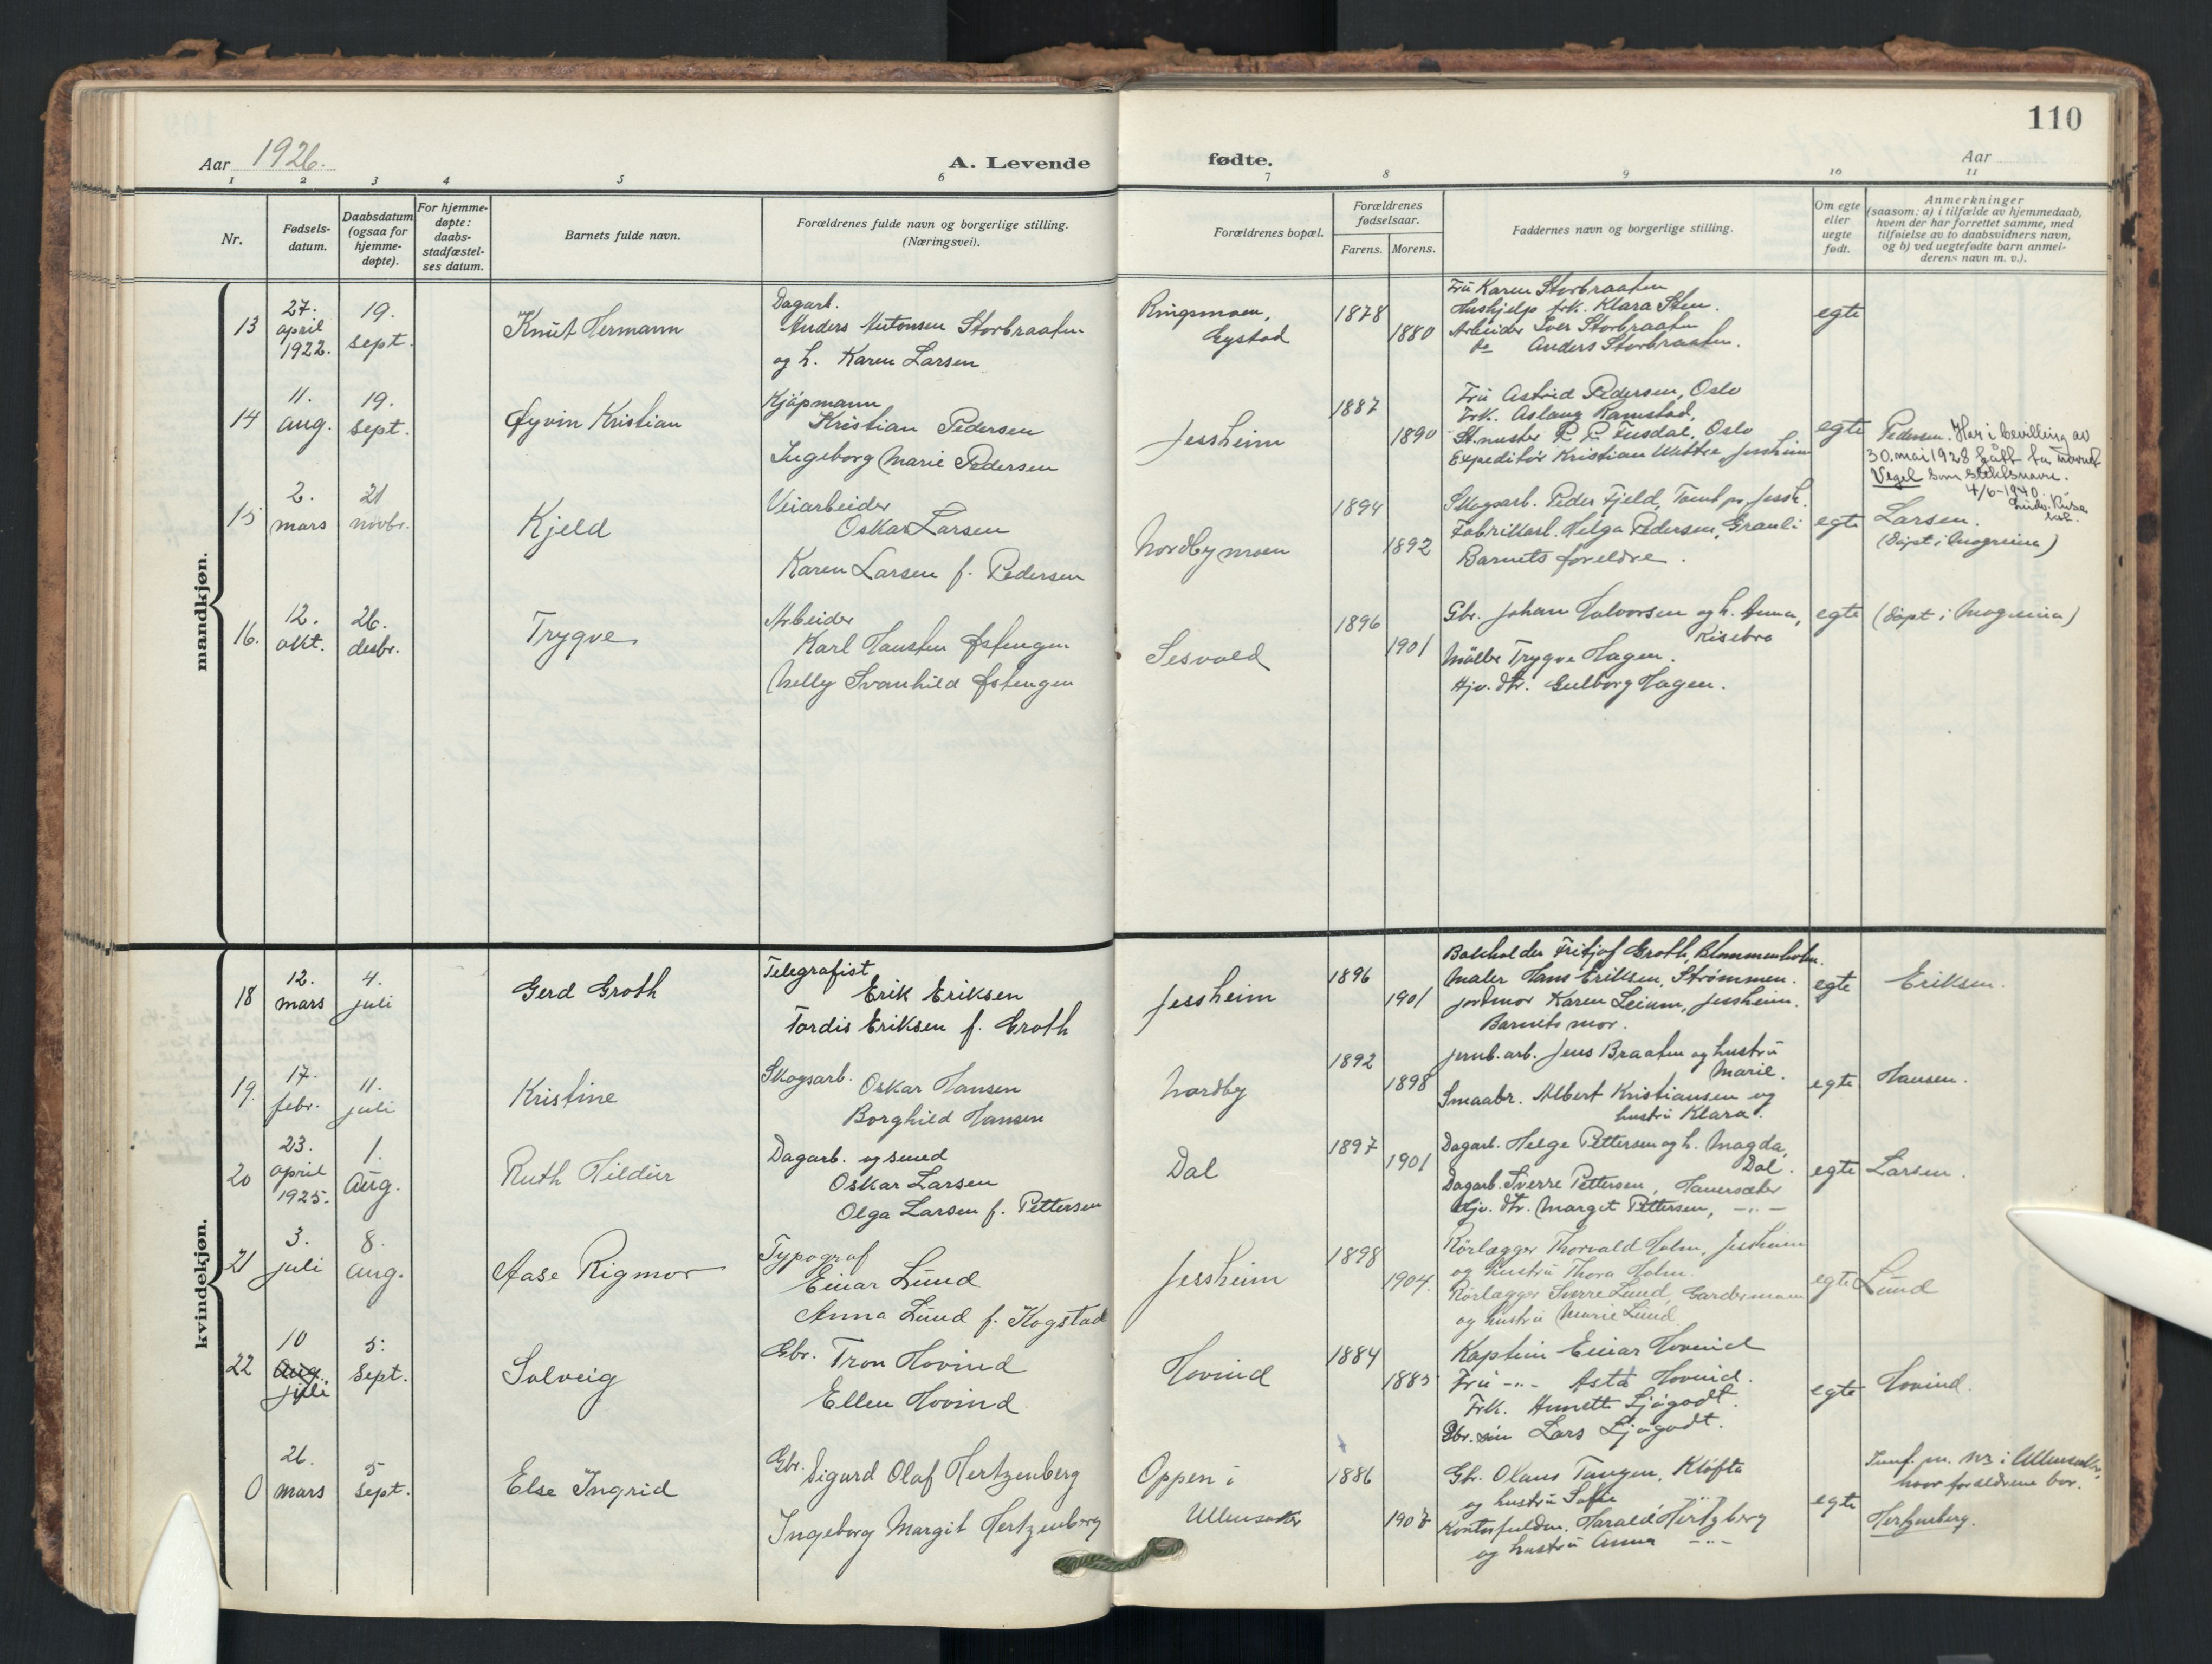 110
Aar 1926.
A. Levende
fødte.
Aar
1 2 3 4 5 6 7 8 9 10 11
Nr.
Fødsels-
datum.
Daabsdatum
(ogsaa for
hjemme-
døpte).
For hjemme-
døpte:
daabs-
stadfæstel-
ses datum.
Barnets fulde navn.
Forældrenes fulde navn og borgerlige stilling.
(Næringsvei).
Forældrenes bopæl.
Forældrenes
fødselsaar.
Farens. Morens.
Faddernes navn og borgerlige stilling.
Om egte
eller
uegte
født.
Anmerkninger
(saasom: a) i tilfælde av hjemmedaab,
hvem der har forrettet samme, med
tilføielse av to daabsvidners navn,
og b) ved uegtefødte barn anmel-
derens navn m. v.).
mandkjøn.
13
27.
april
1922.
19.
sept.
Knut Hermann
Dagarb.
Anders Antonsen Storbraaten
og h. Karen Larsen
Ringsmoen,
Gystad
1878
1880
Fru Karen Storbraaten
Hushjelp frk. Klara Sten.
Arbeider Iver Storbraaten
do Anders Storbraaten.
egte
14
11.
aug.
19.
sept.
Øyvin Kristian
Kjøpmann
Kristian Pedersen
Ingeborg Marie Pedersen
Jessheim
1887
1890
Fru Astrid Pedersen, Oslo
Frk. Aslaug Ramstad,
St.mester P. P. Fusdal, Oslo
Expeditør Kristian Wittre Jessheim
egte
Pedersen. Har i bevilling av
30. mai 1928 fått ta navnet
Vegel som slektsnavn.
4/6-1940.
15
2.
mars
21
novbr.
Kjeld
Veiarbeider
Oskar Larsen
Karen Larsen f. Pedersen
Nordbymoen
1894
1892
Skogsarb. Peder Fjeld, Jessh.
Fabrikkarb. Helga Pedersen, Granli
Barnets foreldre.
egte
Larsen.
(døpt i Mogreina)
16.
12.
okt.
26.
desbr.
Trygve
Arbeider
Karl Hansten Østengen
Nelly Svanhild Østengen
Sesvold
1896
1901
Gbr. Johan Halvorsen og h. Anna,
Risebro
Møller Trygve Hagen.
Hjv. dtr. Gulborg Hagen.
egte
(døpt i Mogreina)
kvindekjøn.
18
12.
mars
4.
juli
Gerd Groth
Telegrafist
Erik Eriksen
Tordis Eriksen f. Groth
Jessheim
1896
1901
Bokholder Fritjof Groth, Blommenholm.
Maler Hans Eriksen, Strømmen.
Jordmor Karen Leium, Jessheim.
Barnets mor.
egte
Eriksen.
19.
17.
febr.
11.
juli
Kristine
Skogsarb. Oskar Hansen
Borghild Hansen
Nordby
1892
1898
Jernb. arb. Jens Braaten og hustru
Marie.
Smaabr. Albert Kristiansen og
hustru Klara.
egte
Hansen.
20
23.
april
1925.
1.
Aug.
Ruth Hildur
Dagarb. og smed
Oskar Larsen
Olga Larsen f. Pettersen
Dal
1897
1901
Dagarb. Helge Pettersen og h. Magda,
Dal.
Dagarb. Sverre Pettersen, Hauersæter
Hjv. dtr. Margit Pettersen, -"-
egte
Larsen.
21
3.
juli
8.
aug.
Aase Rigmor
Typograf
Einar Lund
Anna Lund f. Kogstad
Jessheim
1898
1904.
Rørlægger Thorvald Holm, Jessheim
og hustru Thora Holm.
Rørlægger Sverre Lund, Gardermoen
og hustru Marie Lund.
egte
Lund
22
10
Aug.
juli
5.
Sept.
Solveig
Gbr. Tron Hovind
Ellen Hovind
Hovind
1884
1885
Kaptein Einar Hovind
Fru -"- Asta Hovind.
Frk. Annette Ljøgodt.
Gbr. søn Lars Ljøgodt.
egte
Hovind.
0
26.
mars
5
Sept.
Else Ingrid
Gbr. Sigurd Olaf Hertzenberg
Ingeborg Margit Hertzenberg
Oppen i
Ullensaker
1886
1907
Gbr. Olaus Tangen, Kløfta
og hustru Sofie
Harald Hertzberg
og hustru Anna -"-
egte
Jmf. nr. 113 i Ullensaker,
hvor foreldrene bor.
Hertzenberg.